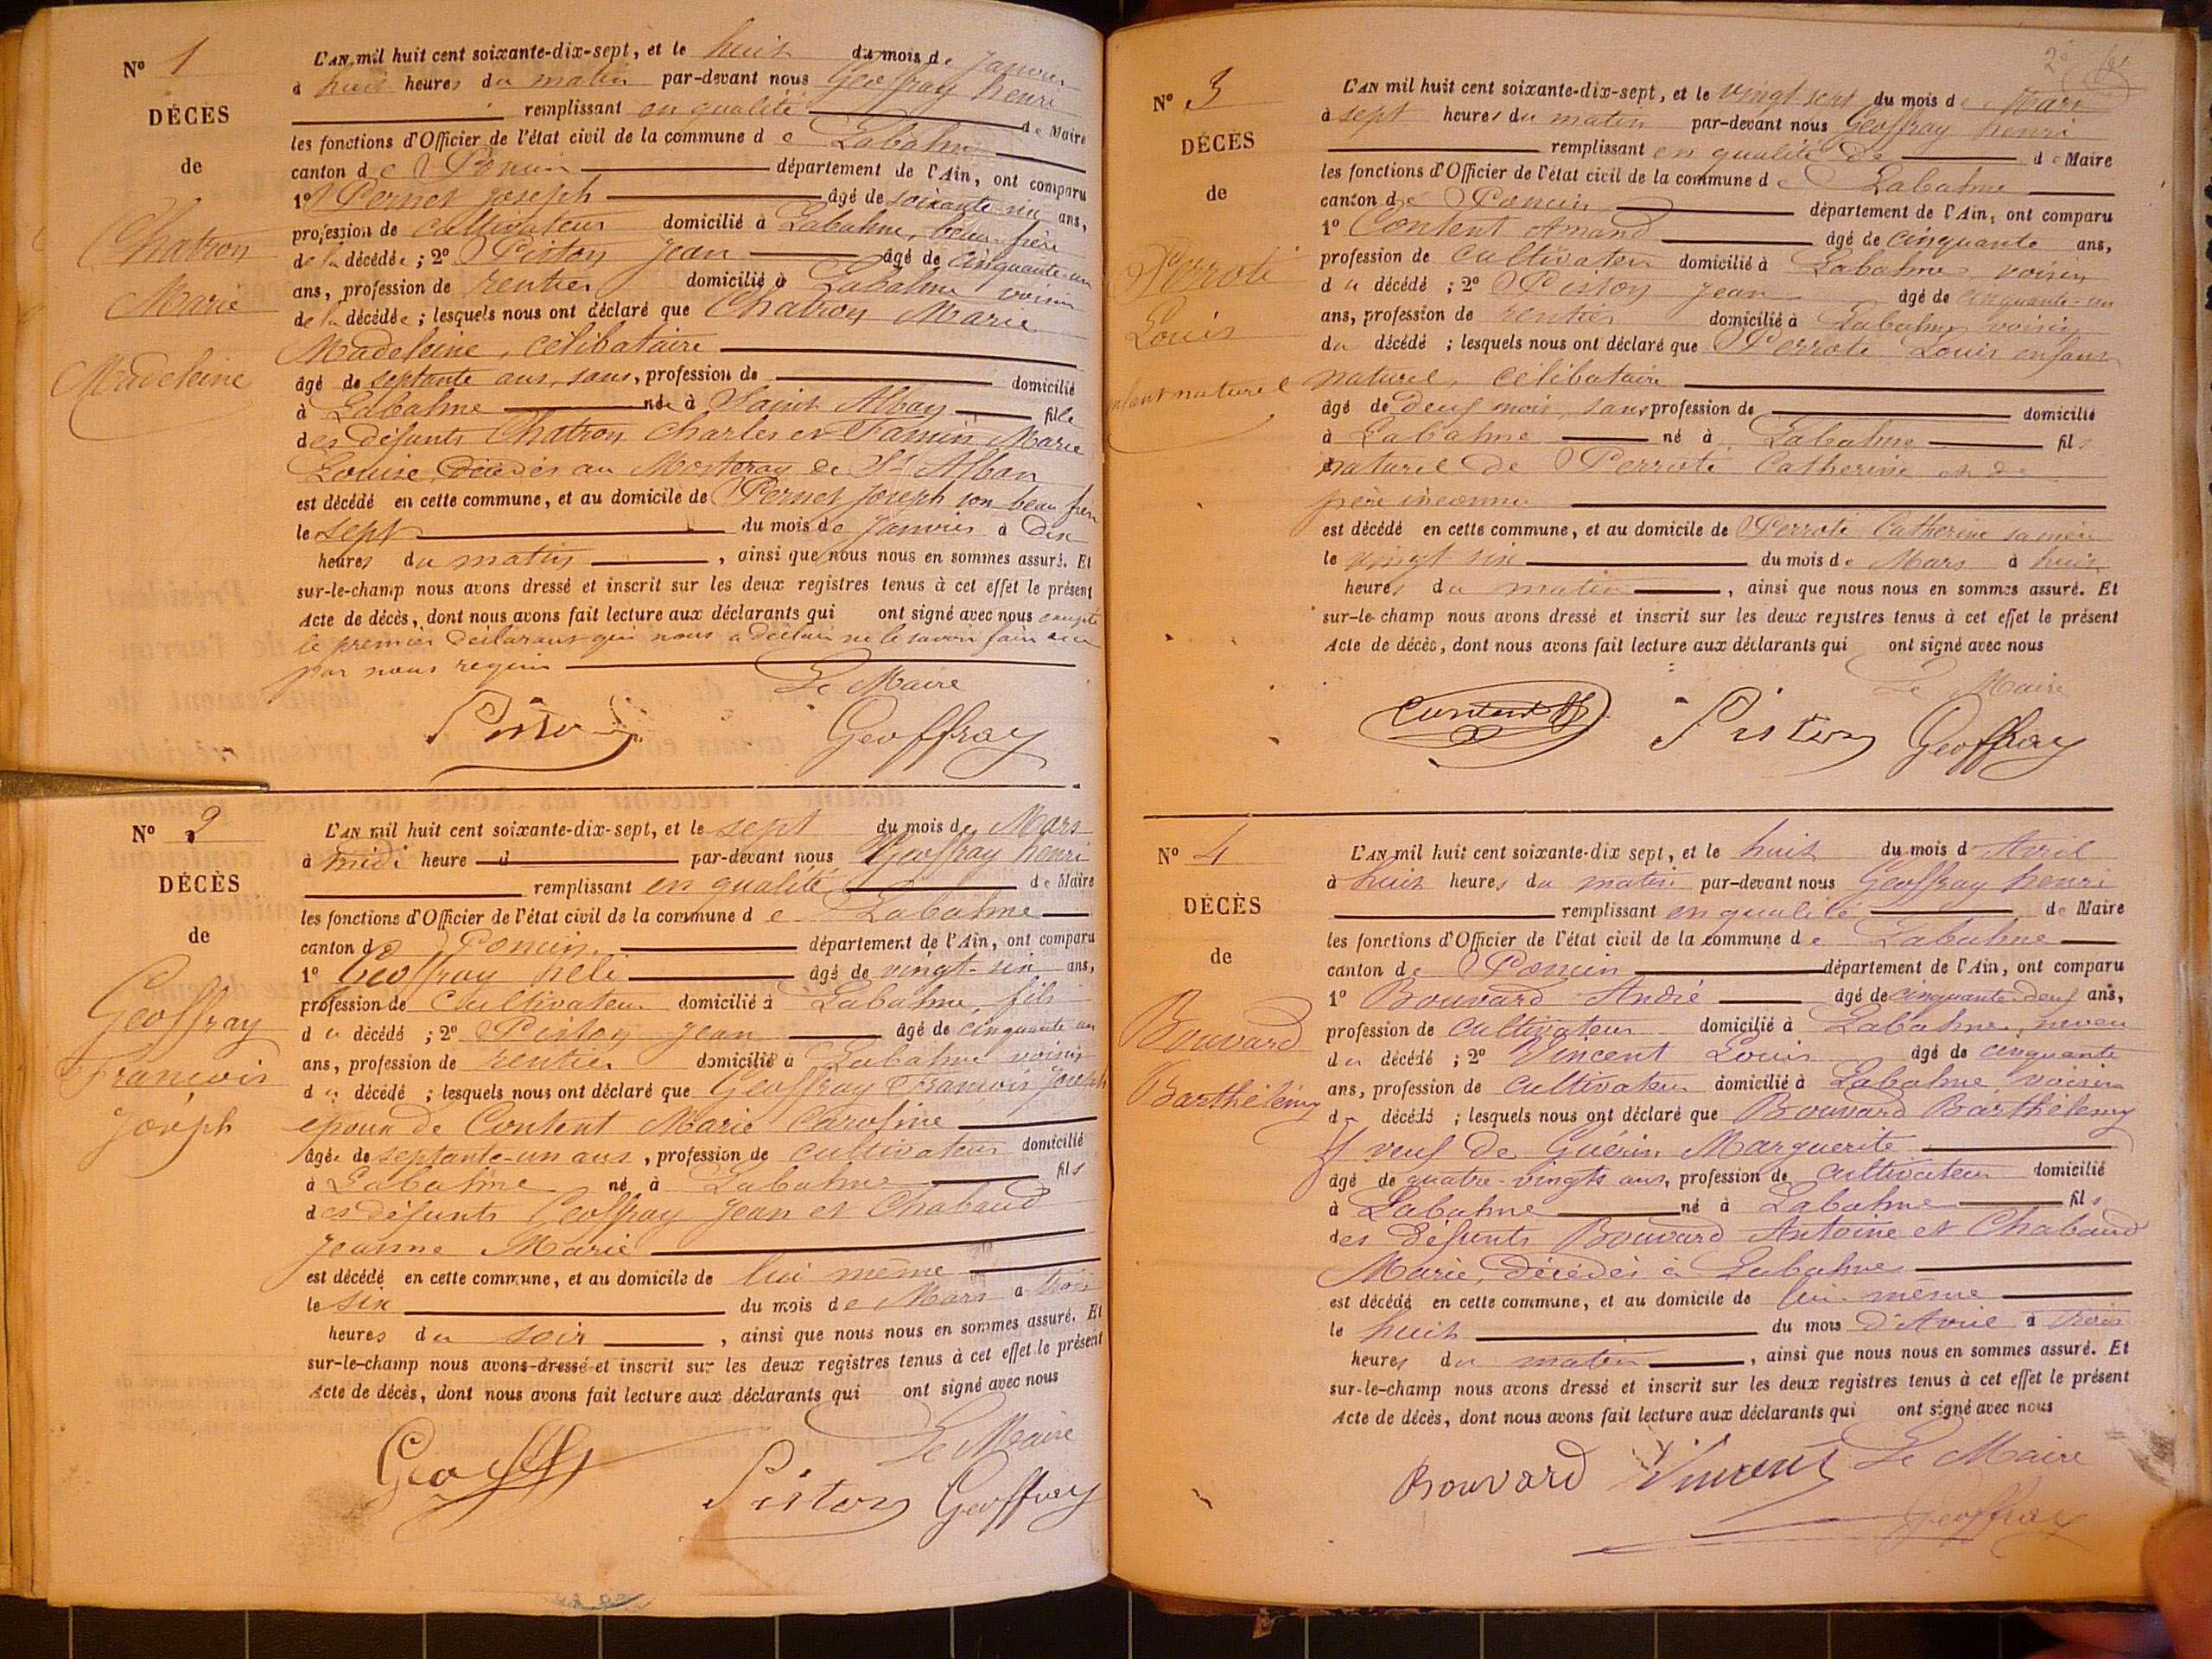 N° 1
DÉCÈS
de
Chatron
Marie
Madeleine
L'AN mil huit cent soixante-dix-sept, et le huit du mois de Janvier
à huit heures du matin par-devant nous Geoffray henri
remplissant en qualité de Maire
les fonctions d'Officier de l'état civil de la commune de Labalme
canton de Poncin département de l'Ain, ont comparu
1° Pernet Joseph âgé de soixante-six ans,
profession de cultivateur domicilié à Labalme, beau-frère
de la décédée ; 2° Piston Jean âgé de cinquante-un
ans, profession de rentier domicilié à Labalme voisin
de la décédée ; lesquels nous ont déclaré que Chatron Marie
Madeleine, célibataire
âgé de septante ans, sans, profession de domicilié
à Labalme née à Saint Alban fille
des défunts Chatron Charles et Marie
Louise, décédés au de St Alban
est décédé en cette commune, et au domicile de Pernet Joseph son beau frère
le sept du mois de Janvier à Dix
heures du matin, ainsi que nous nous en sommes assuré. Et
sur-le-champ nous avons dressé et inscrit sur les deux registres tenus à cet effet le présent
Acte de décès, dont nous avons fait lecture aux déclarants qui ont signé avec nous excepté
le premier déclarant qui nous a déclaré ne le savoir faire de ce
par nous requis
Le Maire
Piston Geoffray
N° 2
DÉCÈS
de
Geoffray
Francois
Joseph
L'AN mil huit cent soixante-dix-sept, et le sept du mois de Mars
à midi heure d par-devant nous Geoffray henri
remplissant en qualité de Maire
les fonctions d'Officier de l'état civil de la commune de Labalme
canton de Poncin département de l'Ain, ont comparu
1° Geoffray âgé de vingt-six ans,
profession de cultivateur domicilié à Labalme, fils
du décédé ; 2° Piston Jean âgé de cinquante-un
ans, profession de rentier domicilié à Labalme voisin
du décédé ; lesquels nous ont déclaré que Geoffray Francois Joseph
époux de Content Marie Caroline
âgé de septante-un ans, profession de cultivateur domicilié
à Labalme né à Labalme fils
des défunts Geoffray Jean et Chabaud
Jeanne Marie
est décédé en cette commune, et au domicile de lui même
le six du mois de Mars à trois
heures du soir, ainsi que nous nous en sommes assuré. Et
sur-le-champ nous avons dressé et inscrit sur les deux registres tenus à cet effet le présent
Acte de décès, dont nous avons fait lecture aux déclarants qui ont signé avec nous
Le Maire
Piston Geoffray
N° 3
DÉCÈS
de
Perroti
Louis
enfant naturel
L'AN mil huit cent soixante-dix-sept, et le vingt sept du mois de Mars
à sept heures du matin par-devant nous Geoffray henri
remplissant en qualité de de Maire
les fonctions d'Officier de l'état civil de la commune de Labalme
canton de Poncin département de l'Ain, ont comparu
1° Content Amand âgé de cinquante ans,
profession de cultivateur domicilié à Labalme voisin
du décédé ; 2° Piston Jean âgé de cinquante-un
ans, profession de rentier domicilié à Labalme voisin
du décédé ; lesquels nous ont déclaré que Perroti Louis enfant
naturel, célibataire
âgé de deux mois, sans profession de domicilié
à Labalme né à Labalme fils
naturel de Perroti Catherine et de
père inconnu
est décédé en cette commune, et au domicile de Perroti Catherine sa mère
le vingt six du mois de Mars à huit
heures du matin, ainsi que nous nous en sommes assuré. Et
sur-le-champ nous avons dressé et inscrit sur les deux registres tenus à cet effet le présent
Acte de décès, dont nous avons fait lecture aux déclarants qui ont signé avec nous
Le Maire
Content Piston Geoffray
N° 4
DÉCÈS
de
Bouvard
Barthélemy
L'AN mil huit cent soixante-dix sept, et le huit du mois d'Avril
à huit heures du matin par-devant nous Geoffray henri
remplissant en qualité de Maire
les fonctions d'Officier de l'état civil de la commune de Labalme
canton de Poncin département de l'Ain, ont comparu
1° Bouvard André âgé de cinquante-deux ans,
profession de cultivateur domicilié à Labalme, neveu
du décédé ; 2° Vincent Louis âgé de cinquante
ans, profession de cultivateur domicilié à Labalme voisin
du décédé ; lesquels nous ont déclaré que Bouvard Barthélemy
veuf de Guérin Marguerite
âgé de quatre-vingts ans, profession de cultivateur domicilié
à Labalme né à Labalme fils
des défunts Bouvard Antoine et Chabaud
Marie, décédés à Labalme
est décédé en cette commune, et au domicile de lui-même
le huit du mois d'Avril à trois
heures du matin, ainsi que nous nous en sommes assuré. Et
sur-le-champ nous avons dressé et inscrit sur les deux registres tenus à cet effet le présent
Acte de décès, dont nous avons fait lecture aux déclarants qui ont signé avec nous
Bouvard Vincent Le Maire
Geoffray